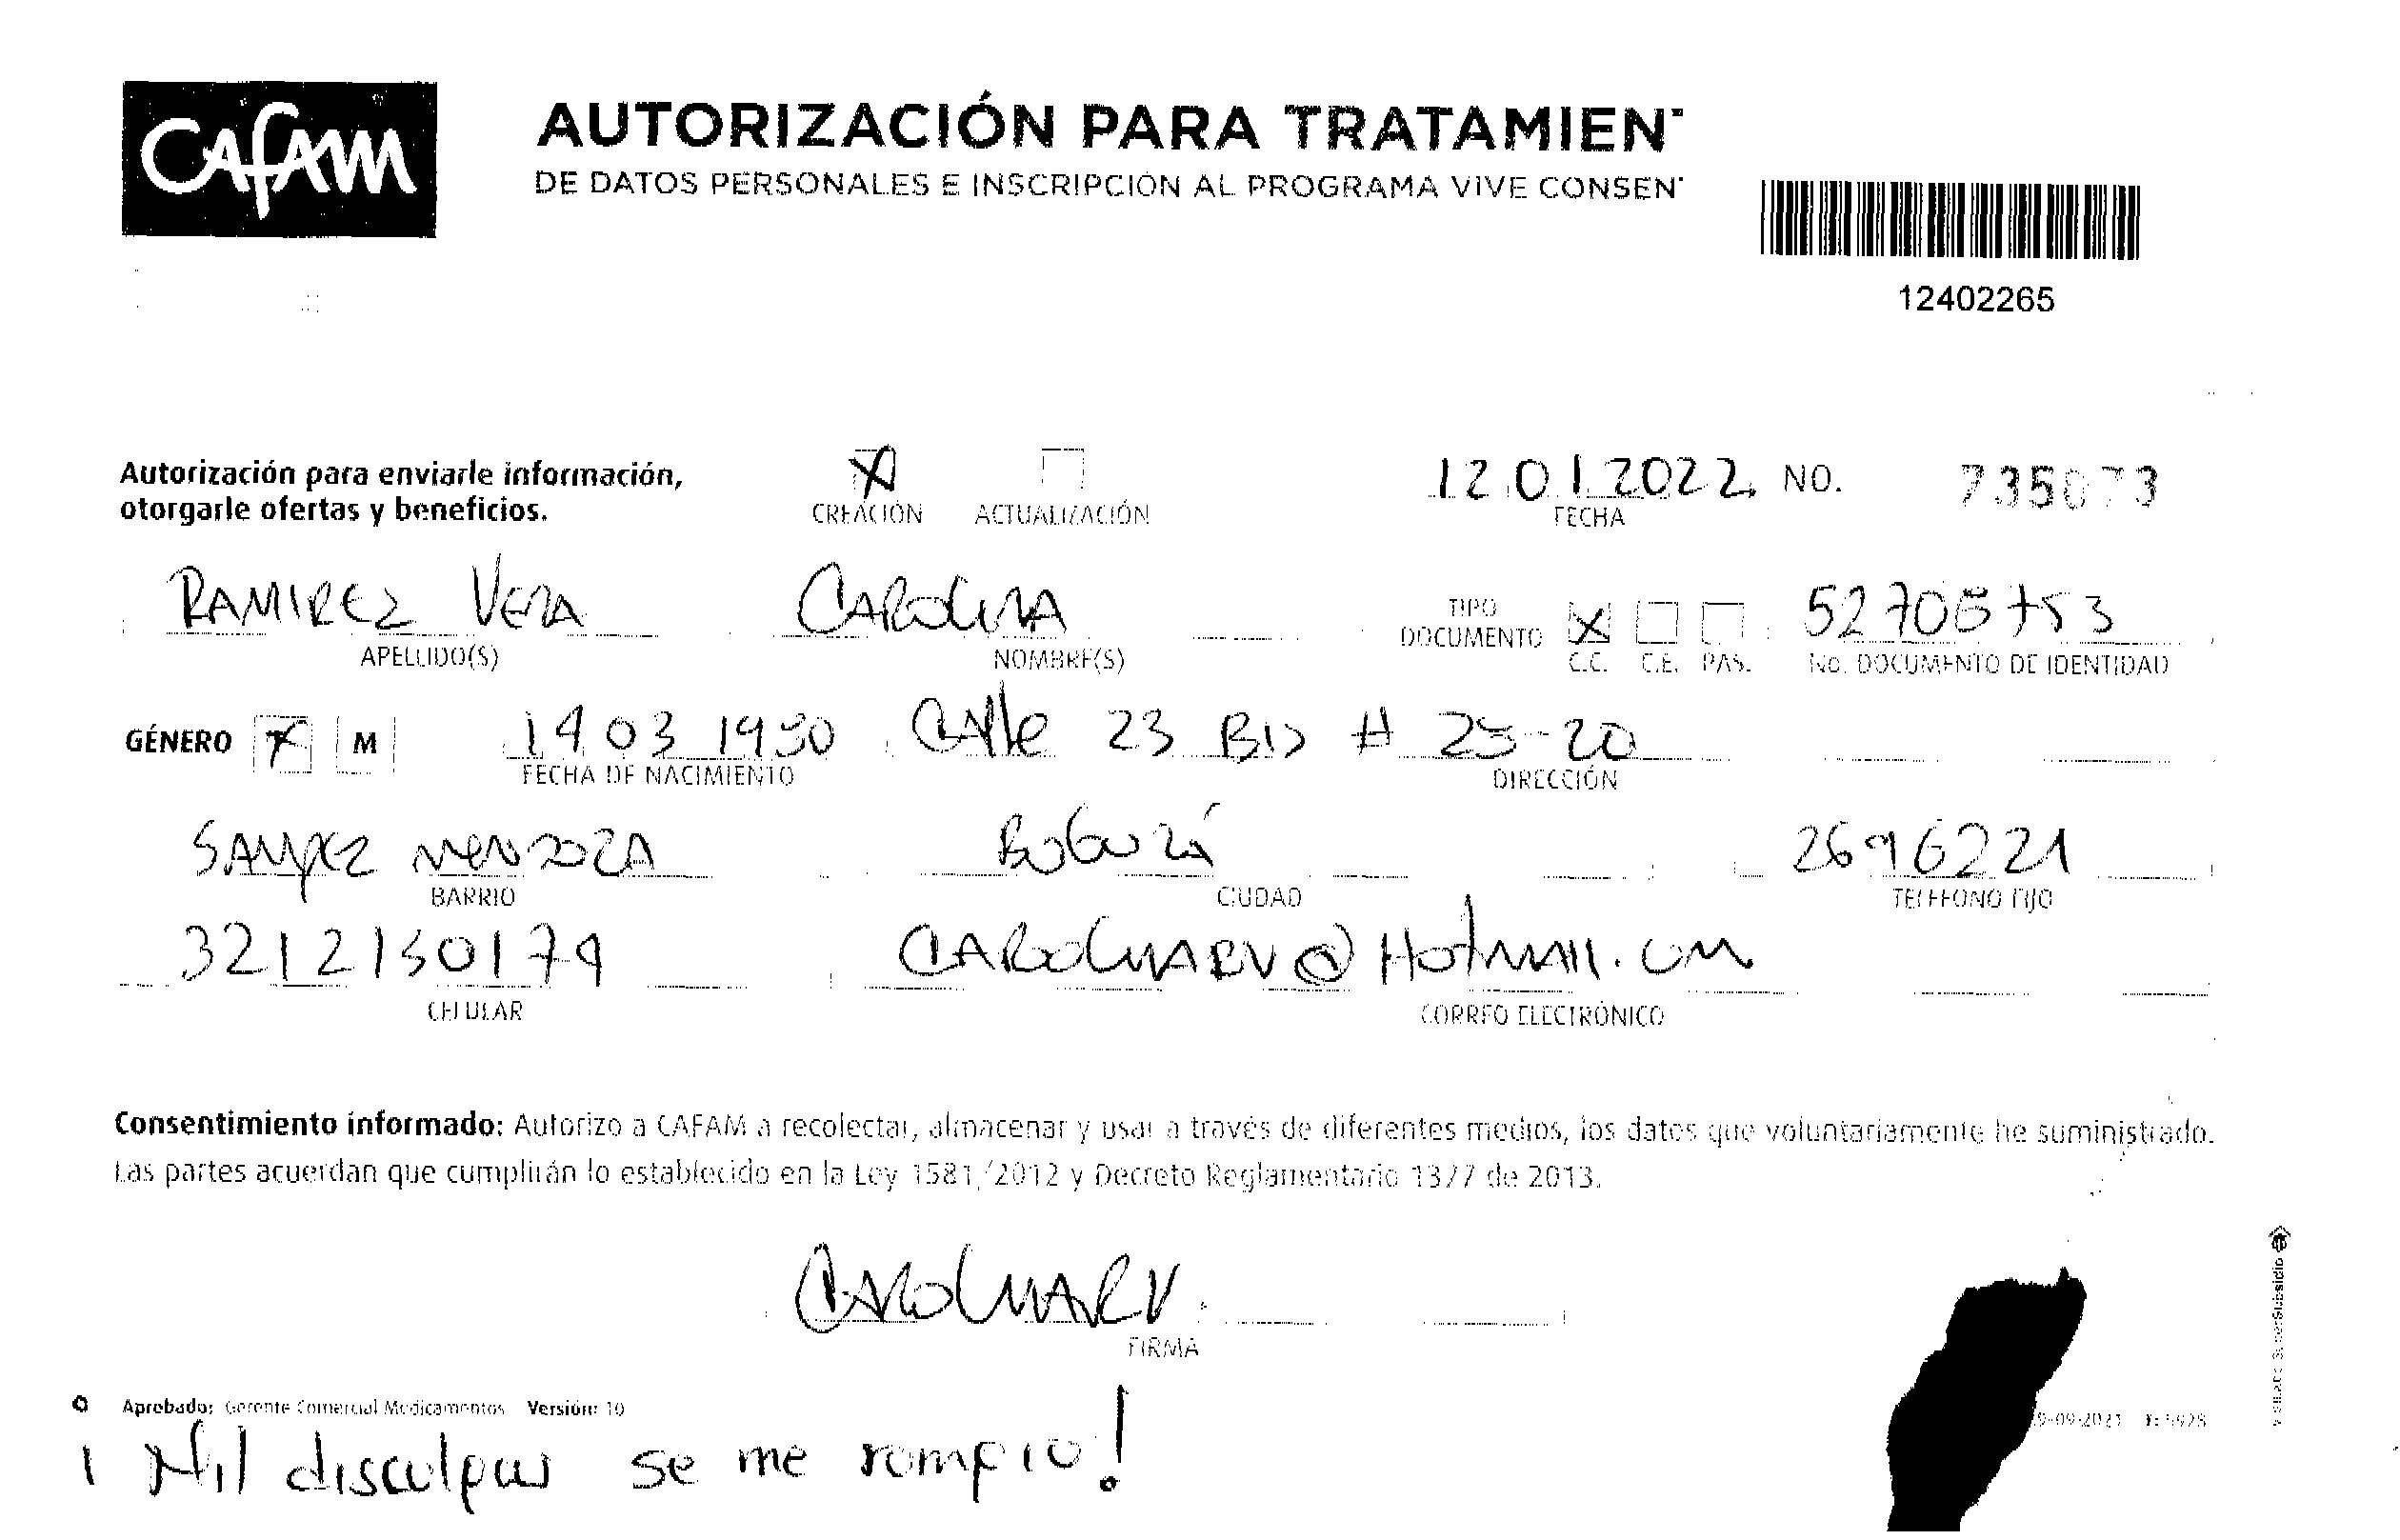 CAFAM
AUTORIZACIÓN PARA TRATAMIEN
DE DATOS PERSONALES E INSCRIPCIÓN AL PROGRAMA VIVE CONSEN
12402265
Autorización para enviarle información,
otorgarle ofertas y beneficios.
X
CREACIÓN ACTUALIZACIÓN
12 01 2022 NO.
FECHA
RAMIREZ VERA CAROLINA
TIPO
DOCUMENTO X
APELLIDO(S) NOMBRE(S) C.C. C.E. PAS. No. DOCUMENTO DE IDENTIDAD
GÉNERO M 14 03 1980 Calle 23 BIS # 25-20
FECHA DE NACIMIENTO DIRECCIÓN
MENDOZA BOGOTÁ 2696221
BARRIO CIUDAD TELÉFONO FIJO
3212150179 CAROLINARV@HOTMAIL.COM
CELULAR CORREO ELECTRÓNICO
Consentimiento informado: Autorizo a CAFAM a recolectar, almacenar y usar a través de diferentes medios, los datos que voluntariamente he suministrado.
Las partes acuerdan que cumplirán lo establecido en la Ley 1581/2012 y Decreto Reglamentario 1377 de 2013.
CAROLINARV
FIRMA
Aprobado: Gerente Comercial Medicamentos Versión: 10
9-09-2021
¡ Mil disculpas se me rompio!